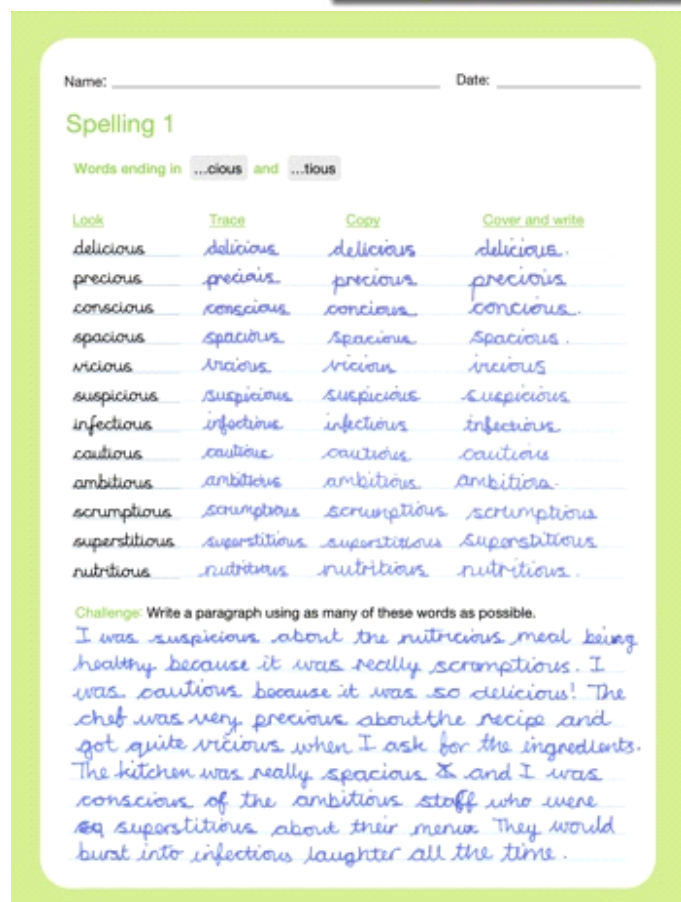 Name: Date:
Spelling 1
Words ending in ...cious and ...tious
Look Trace Copy Cover and write
delicious delicious delicious delicious.
precious precious precious precious
conscious conscious concious concious.
spacious spacious spacious spacious.
vicious vicious vicious vicious
suspicious suspicious suspicious suspicious
infectious infectious infectious infectious
cautious cautious cautious cautious
ambitious ambitious ambitious ambitions.
scrumptious scrumptious scrumptious scrumptious
superstitious superstitious superstitious superstitious
nutritious nutritious nutritious nutritious.
Challenge: Write a paragraph using as many of these words as possible.
I was suspicious about the nutricious meal being
healthy because it was really scromptious. I
was cautious because it was so delicious! The
chef was very precious about the recipe and
got quite vicious when I ask for the ingredients.
The kitchen was really spacious and I was
conscious of the ambitious staff who were
superstitious about their menu They would
burst into infectious laughter all the time.